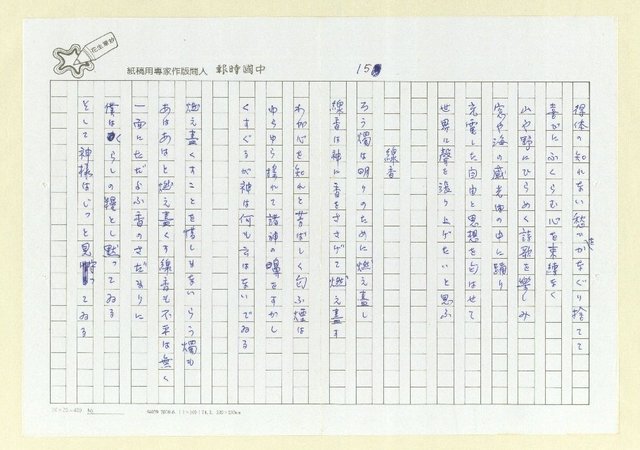 人間版作家專用稿紙 中國時報
15
得体の知れない愁いをかなぐり捨てて
豊かにふくらむ心を束縛なく
山や野にひらめく詩歌を楽しみ
空や海の威光の中に踊り
充電した自由と思想を匂はせて
世界に聲を送り上げたいと思ふ
線香
ろう燭は明りのために燃え盡し
線香は神に香をささげて燃え盡す
わが心を知れと芳ばしく匂ふ煙は
ゆらゆら揺れて諸神の鼻をすかし
くすぐるが神は何も云はないでゐる
燃え盡くすことを惜しまないろう燭も
あはあはと燃え盡くす線香も不平は無く
一面にただよふ香のさだまりに
僕はくらしの糧とし黙ってゐる
そして神様はじっと見守ってゐる